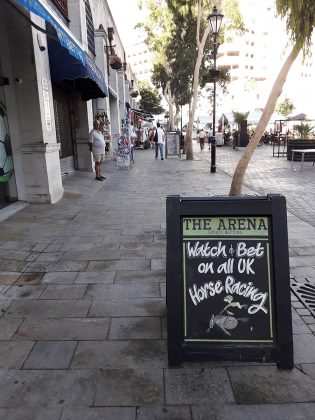 THE ARENA
SPORTS BETTING
Watch & Bet
on all UK
Horse Racing